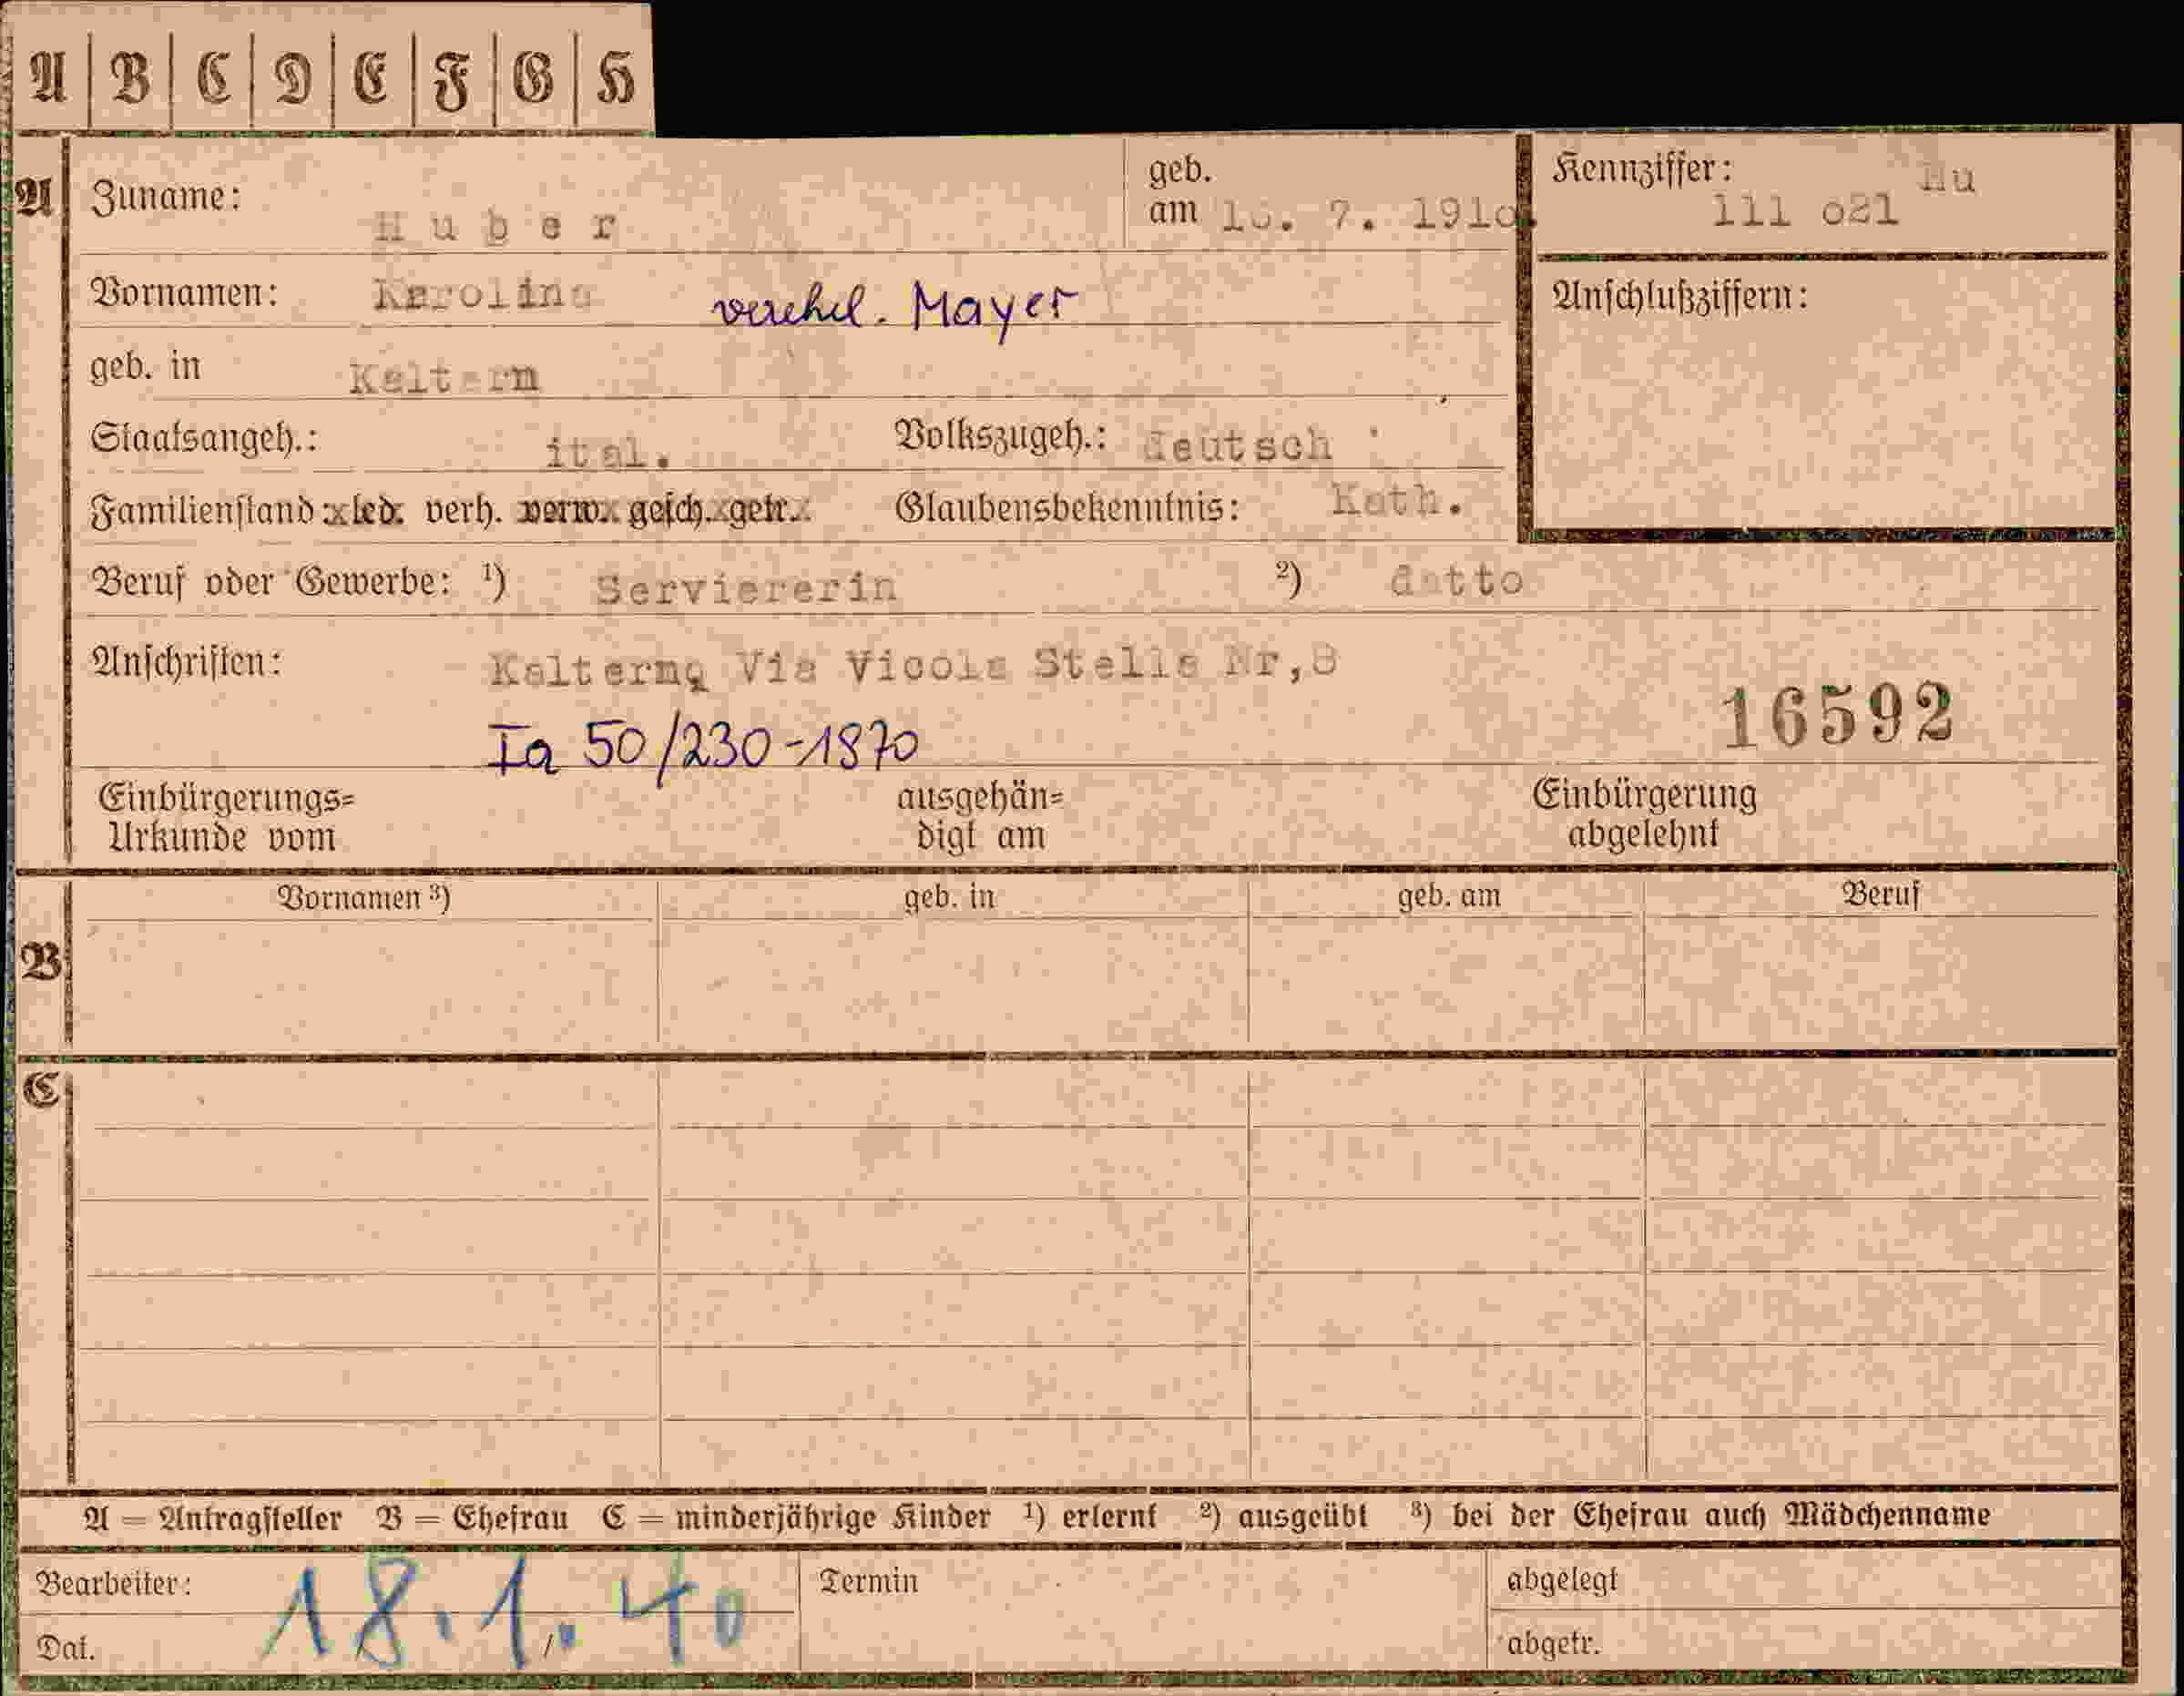 A | B | C | D | E | F | G | H
A Zuname: Huber
geb. am 7. 1910.
Kennziffer: Hu
111 o21
Vornamen: Karolina verehel. Mayer
Anschlußziffern:
geb. in Kaltern
Staatsangeh.: ital. Volkszugeh.: deutsch
Familienstand: led. verh. verw. gesch. getr. Glaubensbekenntnis: Kath.
Beruf oder Gewerbe: ¹) Serviererin ²) datto
Anschriften: Kalterng Via Vicola Stella Nr,8
Ia 50/230-1870
16592
Einbürgerungs=
Urkunde vom
ausgehän=
digt am
Einbürgerung
abgelehnt
Vornamen ³) geb. in geb. am Beruf
B
C
A = Antragsteller B = Ehefrau C = minderjährige Kinder ¹) erlernt ²) ausgeübt ³) bei der Ehefrau auch Mädchenname
Bearbeiter:
Dat. 18.1.40
Termin
abgelegt
abgetr.